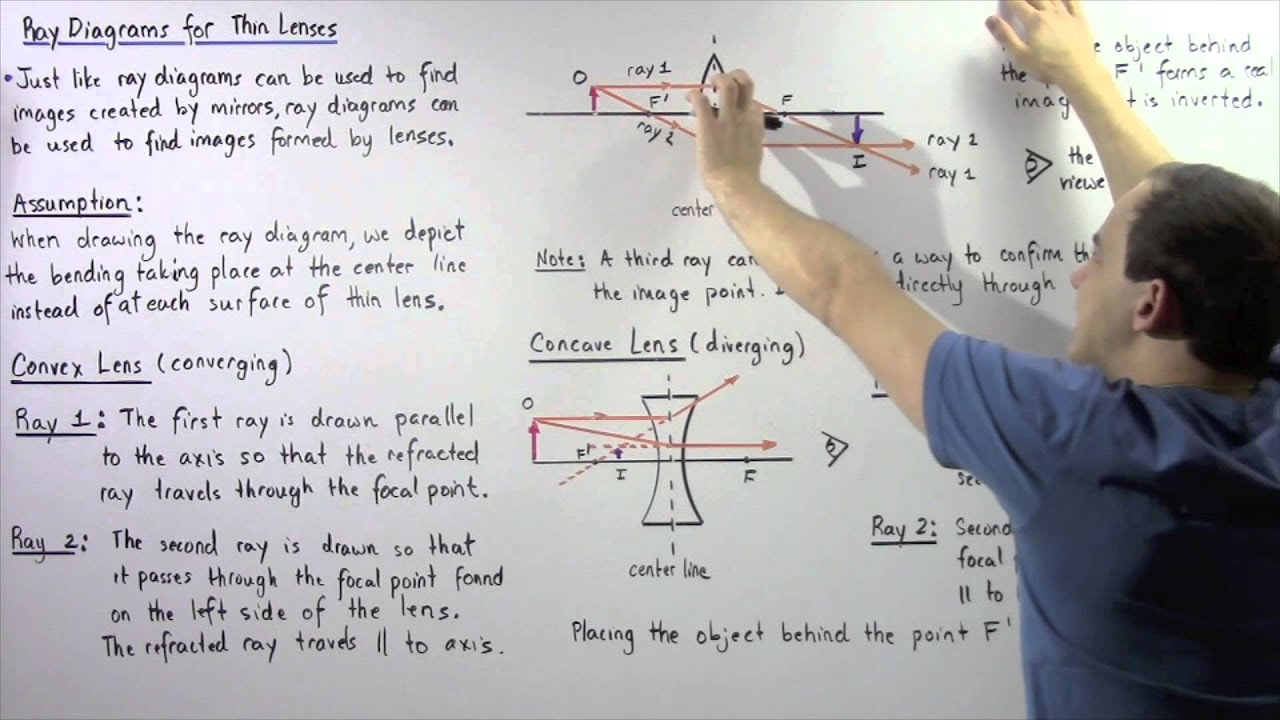 Ray Diagrams for Thin Lenses
• Just like ray diagrams can be used to find
images created by mirrors, ray diagrams can
be used to find images formed by lenses.
Assumption:
When drawing the ray diagram, we depict
the bending taking place at the center line
instead of at each surface of thin lens.
Convex Lens (converging)
Ray 1: The first ray is drawn parallel
to the axis so that the refracted
ray travels through the focal point.
Ray 2: The second ray is drawn so that
it passes through the focal point found
on the left side of the lens.
The refracted ray travels || to axis.
O
ray 1
F'
F
ray 2
I
ray 2
ray 1
center
object behind
the F' forms a real
is inverted.
the
Note: A third ray can a way to confirm
the image point. directly through
Concave Lens (diverging)
O
F'
I
F
center line
Ray 2: Second
focal
|| to
Placing the object behind the point F'